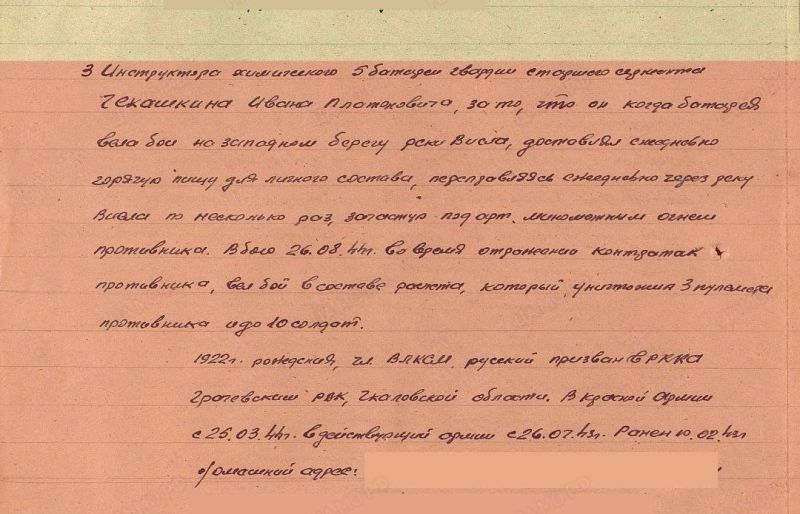 3 Инструктора химического 5 батареи гвардии старшего сержанта
Чекашкина Ивана Платоновича, за то, что он когда батарея
вела бои на западном берегу реки Висла, доставлял ежедневно
горячую пищу для личного состава, переправляясь ежедневно через реку
Висла по несколько раз, зачастую под арт. минометным огнем
противника. В бою 26.08.44г. во время отражении контратак
противника, вел бой в составе расчета, который уничтожил 3 пулемета
противника и до 10 солдат.
1922г. рождения, чл. ВЛКСМ, русский призван в РККА
Грачевским РВК, Чкаловской области. В Красной Армии
с 25.03.44г. в действующий армии с 26.07.43г. Ранен 02.43г
Домашний адрес: